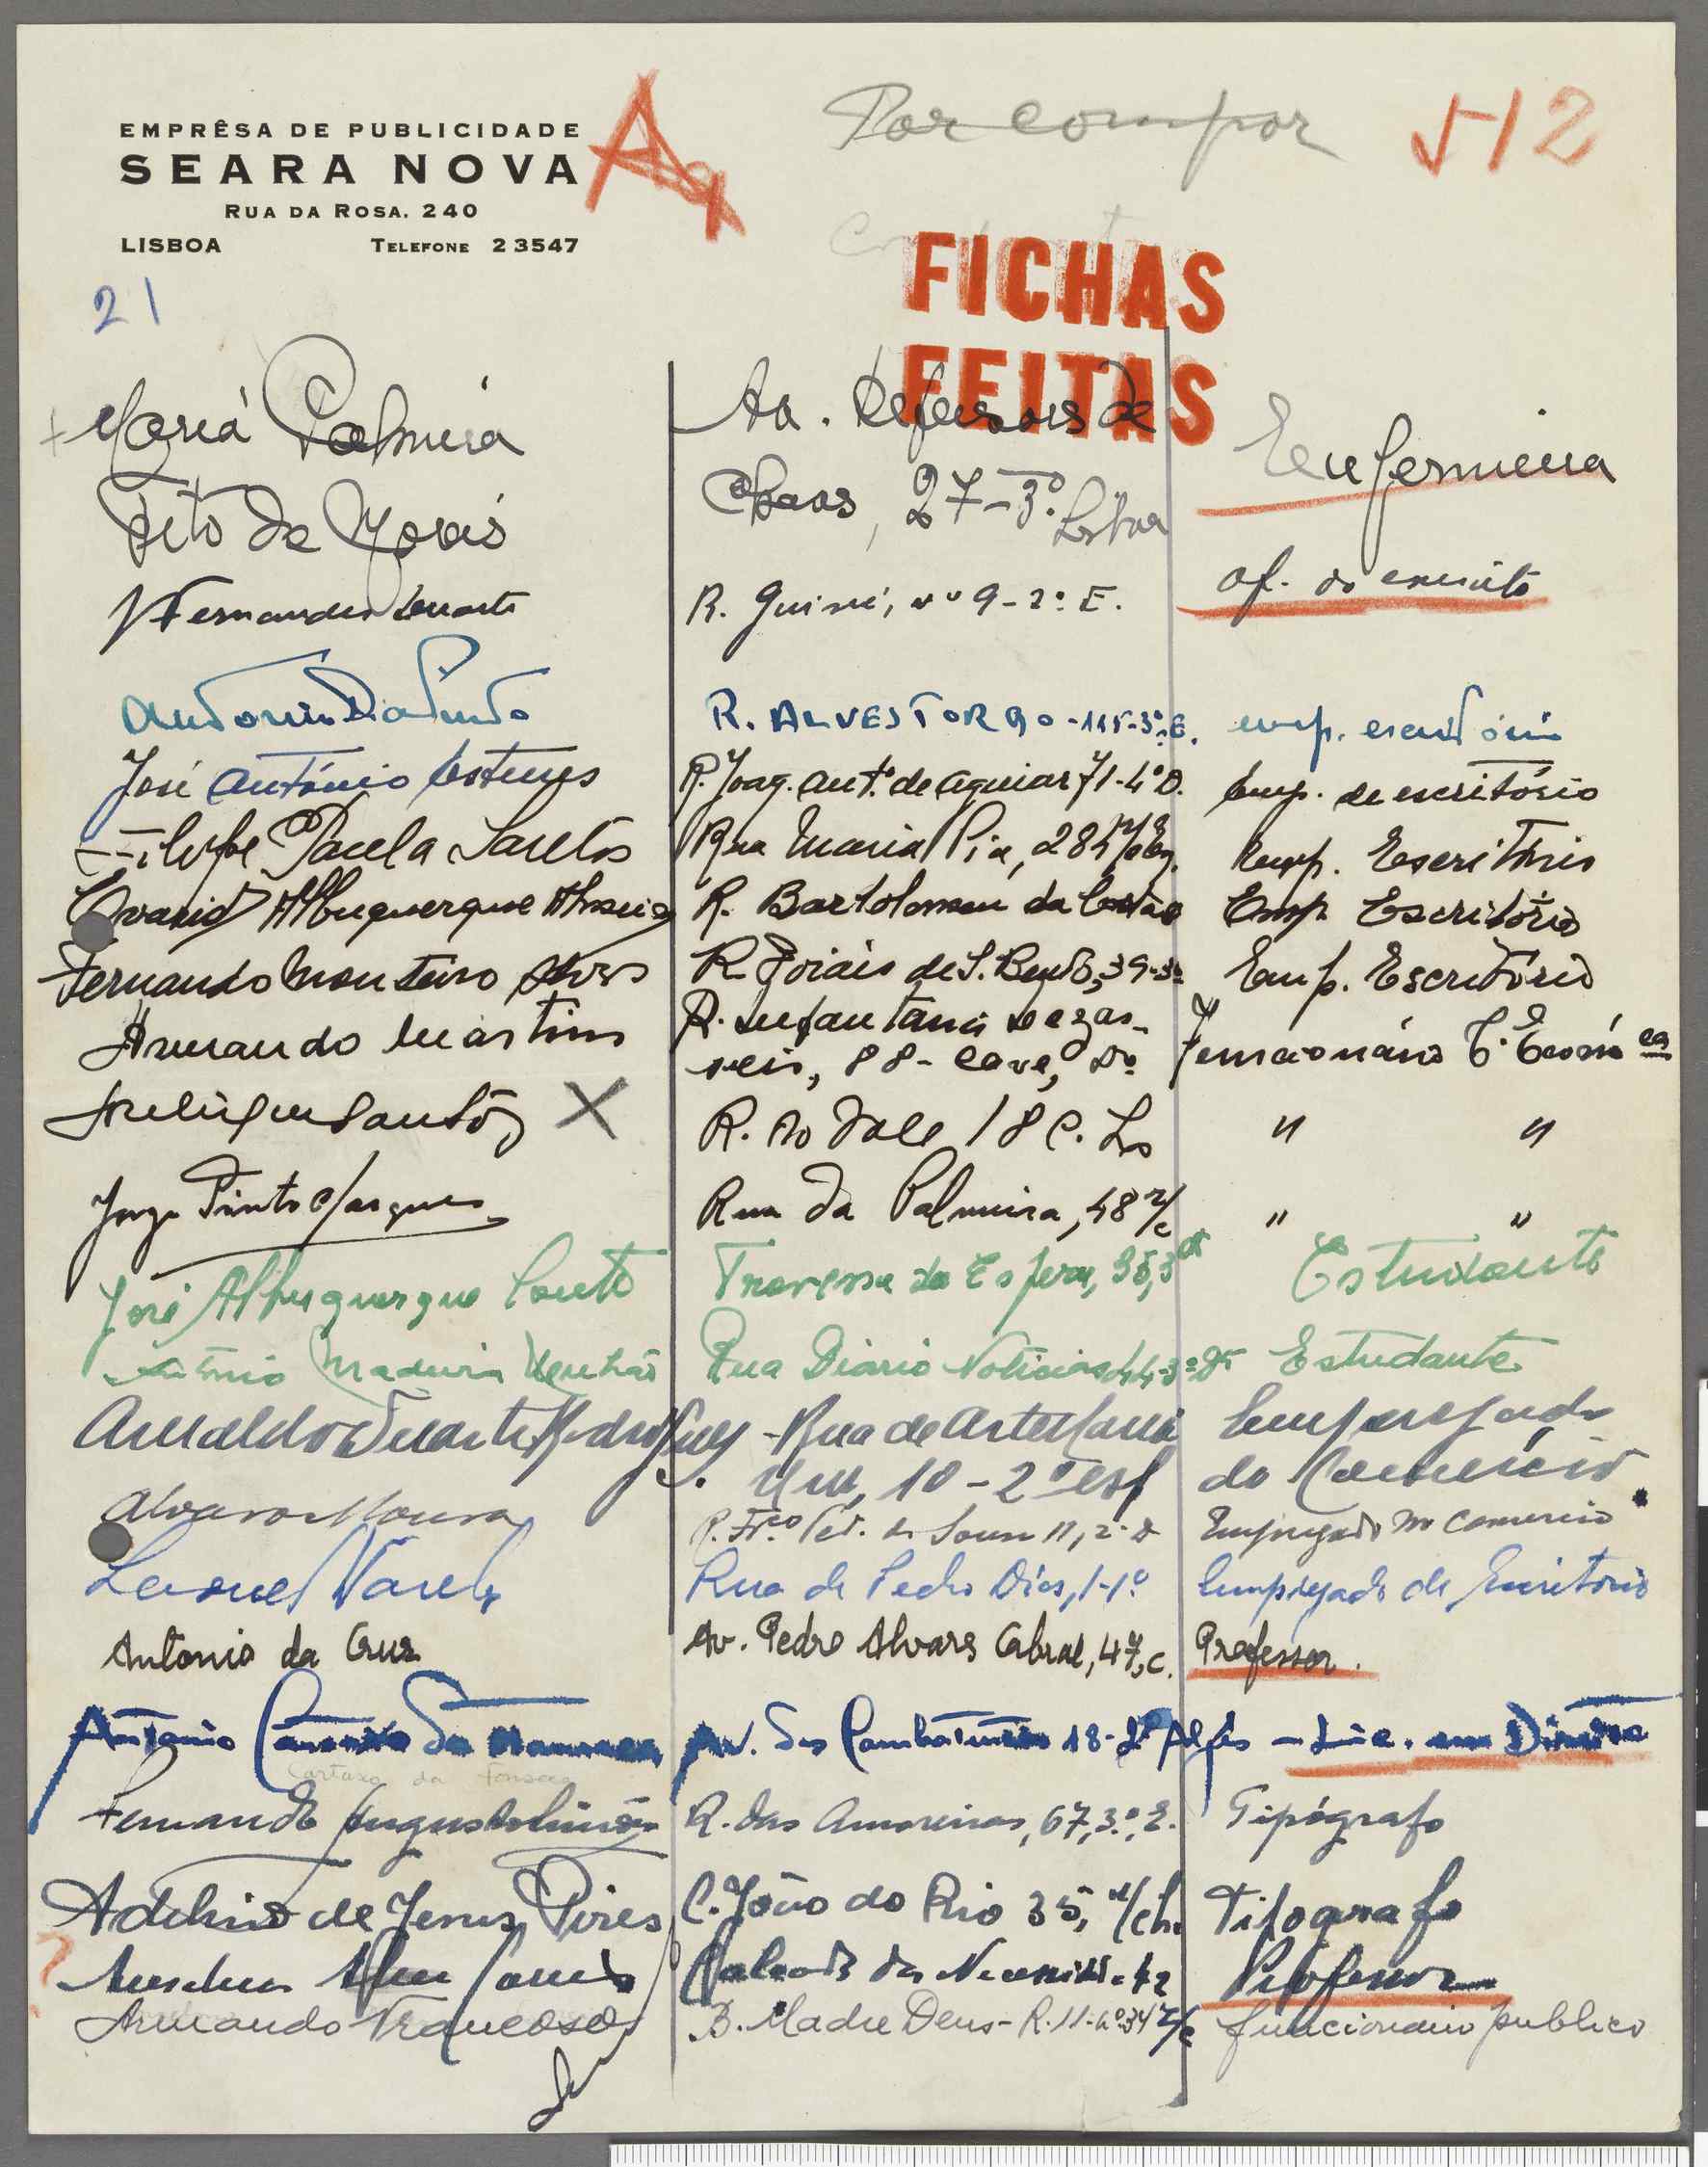 EMPRÊSA DE PUBLICIDADE
SEARA NOVA
RUA DA ROSA. 240
LISBOA TELEFONE 23547
Por compor
512
FICHAS
FEITAS
21
Maria Palmira Av. Defensores de Enfermeira
Tito de Morais Chaves, 27-3º Lisboa
Fernandes Duarte R. Guiné, nº 9-2º E. of. do exército
António R. ALVES TORGO-115-3º E. emp. escritório
José António Esteves R. Joaq. Antº. de Aguiar 71-4º D. Emp. de escritório
Filipe Paula Santos Rua Maria Pia, 284 Emp. Escritório
Albuquerque R. Bartolomeu da Costa Emp. Escritório
Fernando Monteiro Alves R. Poiais de S. Bento, 39-3º Emp. Escritório
Armando Martins R. Infantaria dezas-
seis, 88-cave, Dº Funcionário C. Económica
Santos X R. do Vale 18 C. " "
Jorge Pinto Marques Rua da Palmeira, 48 r/c " "
José Albuquerque Couto Travessa da Espera, 35, 3º Estudante
António Madeira Rua Diário Notícias 44-3º Dt Estudante
Arnaldo Duarte Rodrigues - Rua de Artilharia Empregado
Um, 10-2º esq do Comércio
Alvaro Moura R. Frco. de Sousa 11, 2º D Empregado no Comercio
Leonel Varela Rua de Pedro Dias, 1-1º Empregado de Escritorio
Antonio da Cruz Av. Pedro Alvares Cabral, 47, c. Professor.
Antonio Cartaxo da Fonseca Av. dos Combatentes 18-2º Algés - Lic. em Direito
Cartaxo da Fonseca
Fernando Augusto Simões R. das Amoreiras, 67, 3º, E. Tipógrafo
Adelino de Jesus Pires C. João do Rio 35, r/ch. Tipografo
? Calçada das Necessid. 42 Professor
Armando Trancoso B. Madre Deus-R. 11-nº 34 r/c funcionario publico